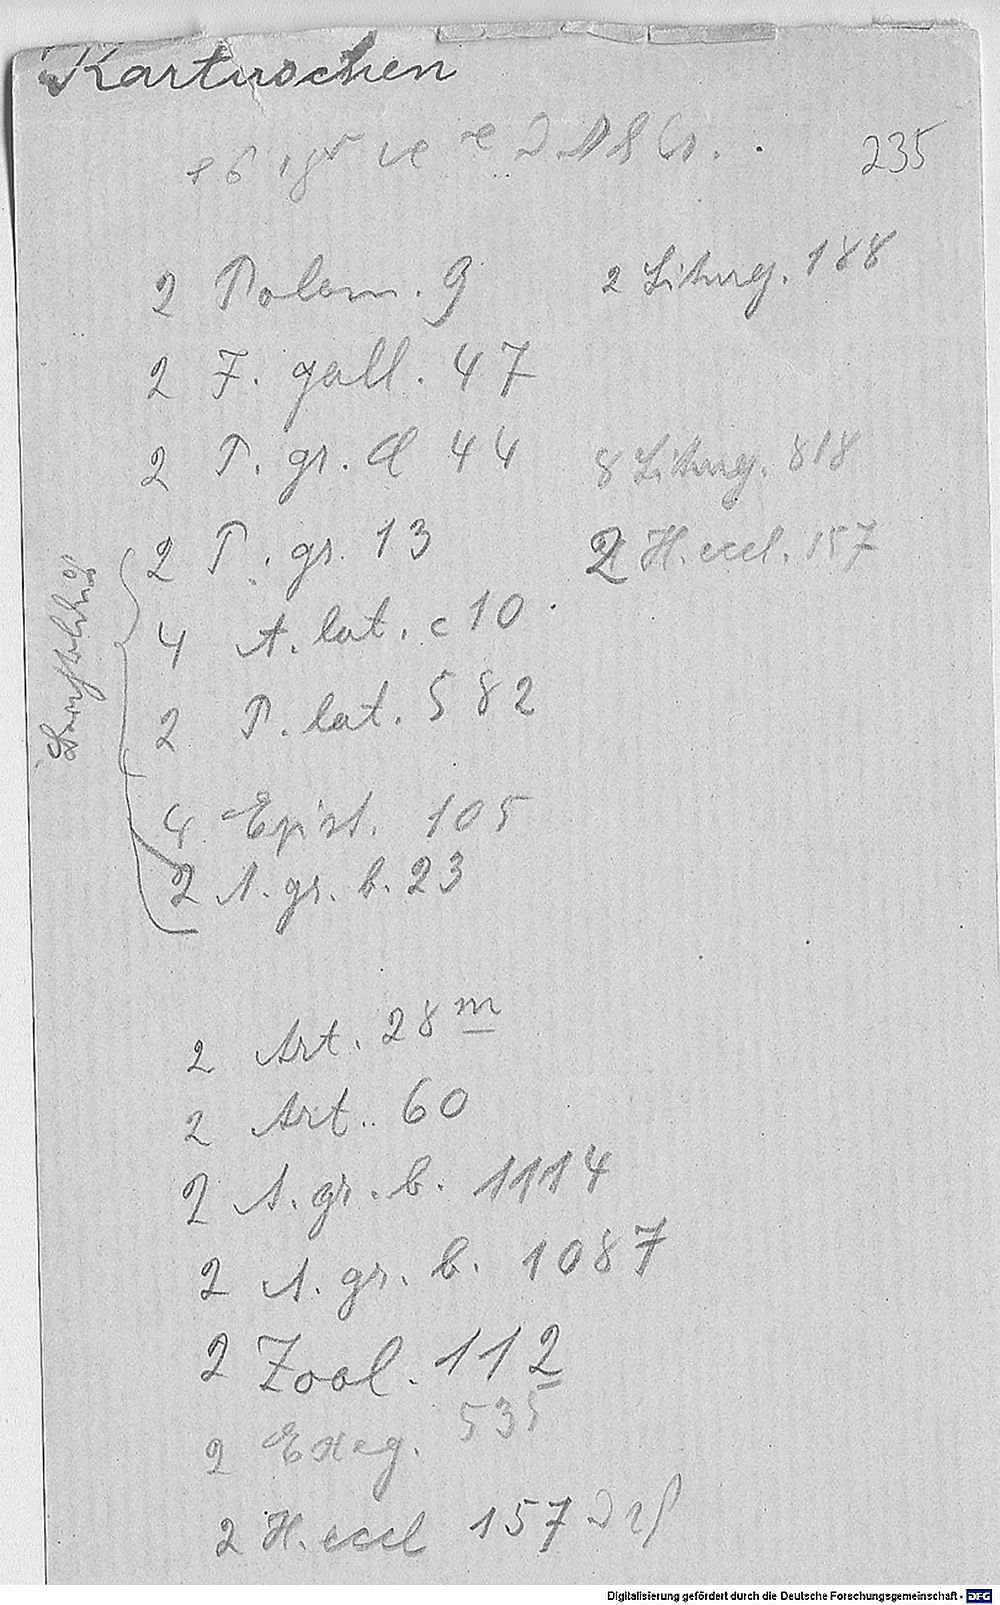 Kartuschen
235
2 Polem. 9
2 Liturg. 188
2 F. gall. 47
2 P. gr. d 44
8 Liturg. 818
2 P. gr. 13
2 H. eccl. 157
4 A. lat. c 10
2 P. lat. 582
4 Epist. 105
2 A. gr. b. 23
2 Art. 28 m
2 Art. 60
2 A. gr. b. 1114
2 A. gr. b. 1087
2 Zool. 112
2 Exeg. 535
2 H. eccl 157
Digitalisierung gefördert durch die Deutsche Forschungsgemeinschaft - DFG